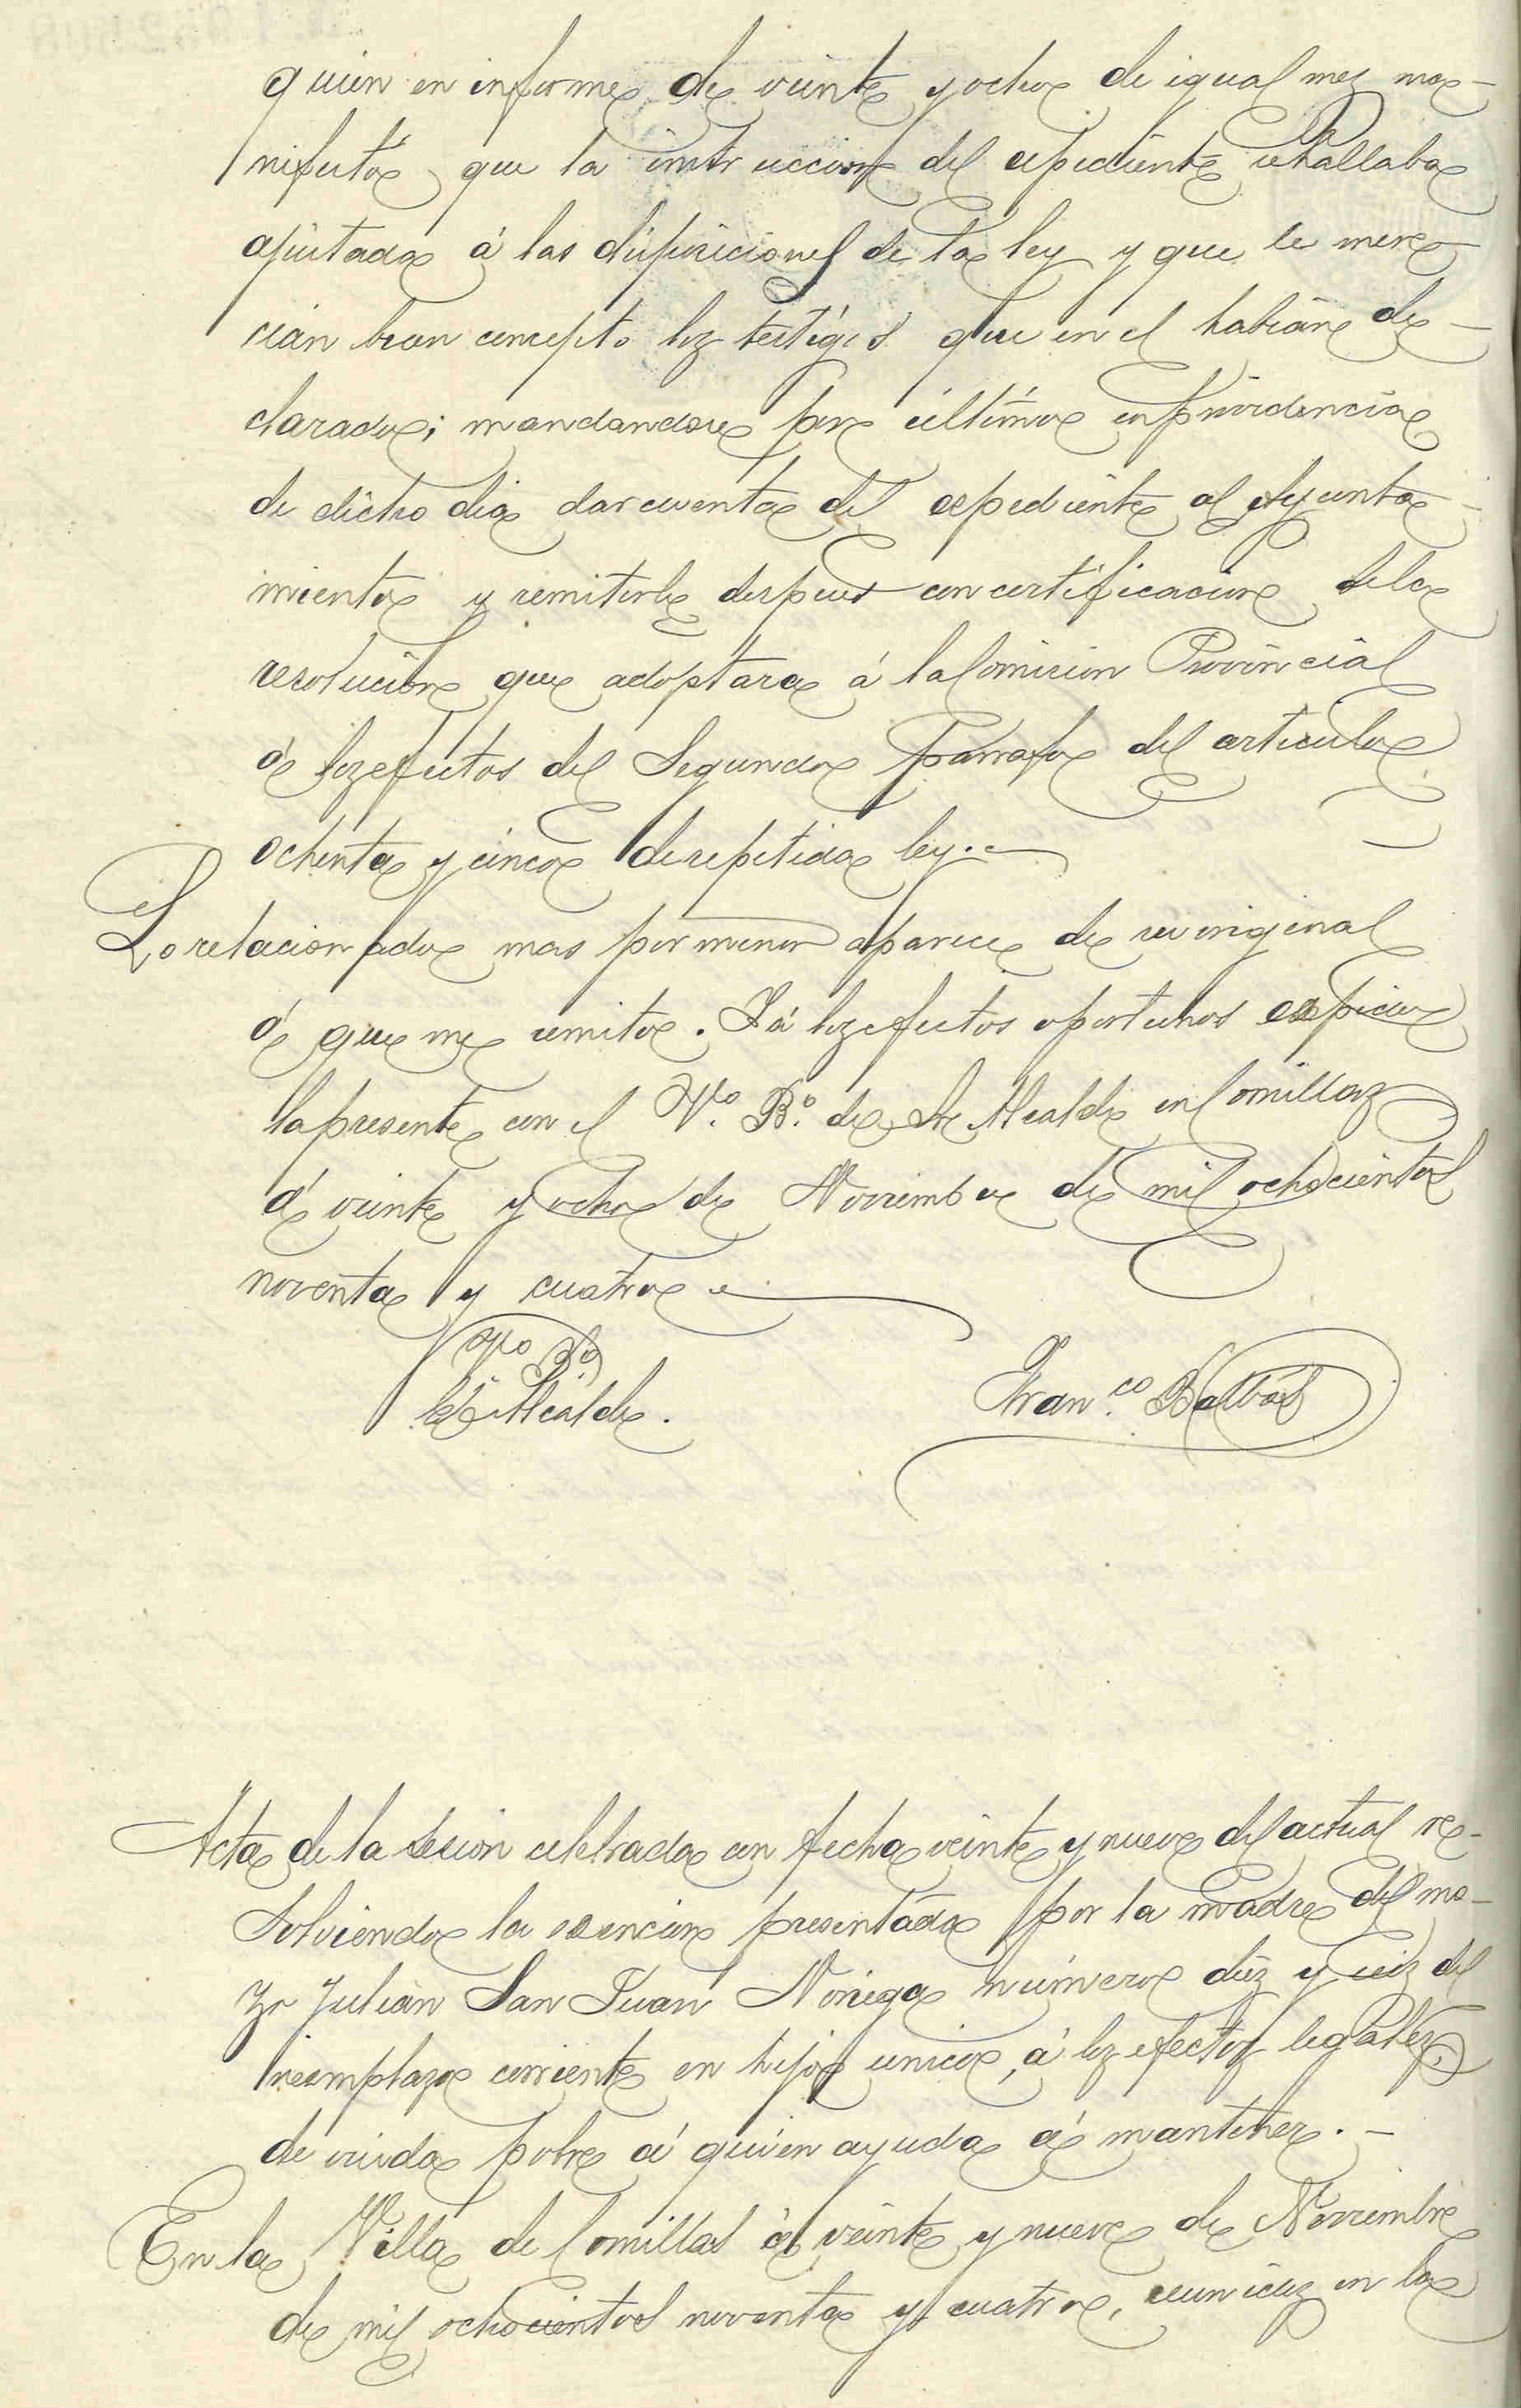 quien en informe de veinte y ocho de igual mez ma-
nifestó que la instruccion del espediente se hallaba
ajustada á las disposiciones de la ley y que le mere-
cian buen concepto loz testigos que en el habian de-
clarado; mandandose por último en providencia
de dicho dia dar cuenta del espediente al Ayunta-
miento y remitirle despues con certificacion de la
resolucion que adoptara á la Comision Provincial
á loz efectos del Segundo párrafo del articulo
ochenta y cinco de repetida ley.
Lo relacionado mas por menor aparece de su original
á que me remito. Y á loz efectos oportunos espido
la presente con el Vº. Bº. de Sr Alcalde en Comillaz
á veinte y ocho de Noviembre de mil ochocientos
noventa y cuatro
Vº Bº
El Alcalde.
Fran.co Balbás
Acta de la sesion celebrada con fecha veinte y nueve del actual re-
solviendo la esencion presentada por la madre del mo-
zo Julian San Juan Noriega número diez y seiz del
reemplazo corriente en hijo unico, á loz efectoz legalez,
de viuda pobre á quien ayuda á mantener. -
En la Villa de Comillas á veinte y nueve de Noviembre
de mil ochocientos noventa y cuatro, reunidoz en la